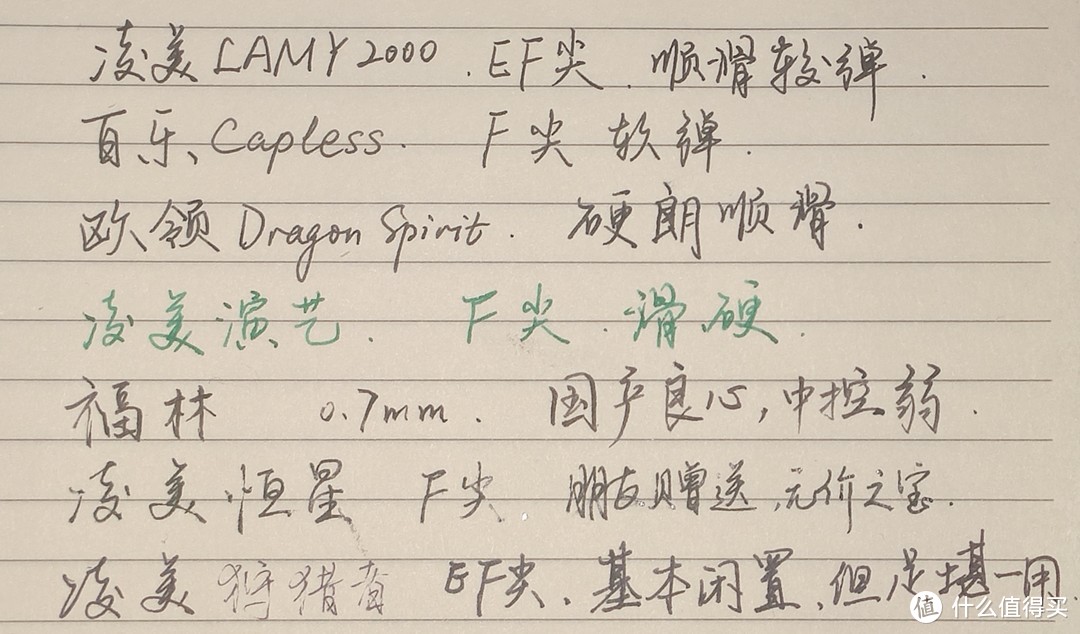 凌美 LAMY 2000. EF尖. 顺滑较弹.
百乐、Capless. F尖 软弹.
欧领 Dragon Spirit. 硬朗顺滑.
凌美演艺. F尖. 滑.硬.
福林 0.7mm. 国产良心,中控弱.
凌美恒星 F尖 朋友赠送,无价之宝.
凌美狩猎者 EF尖、基本闲置,但足堪一用.
值 什么值得买